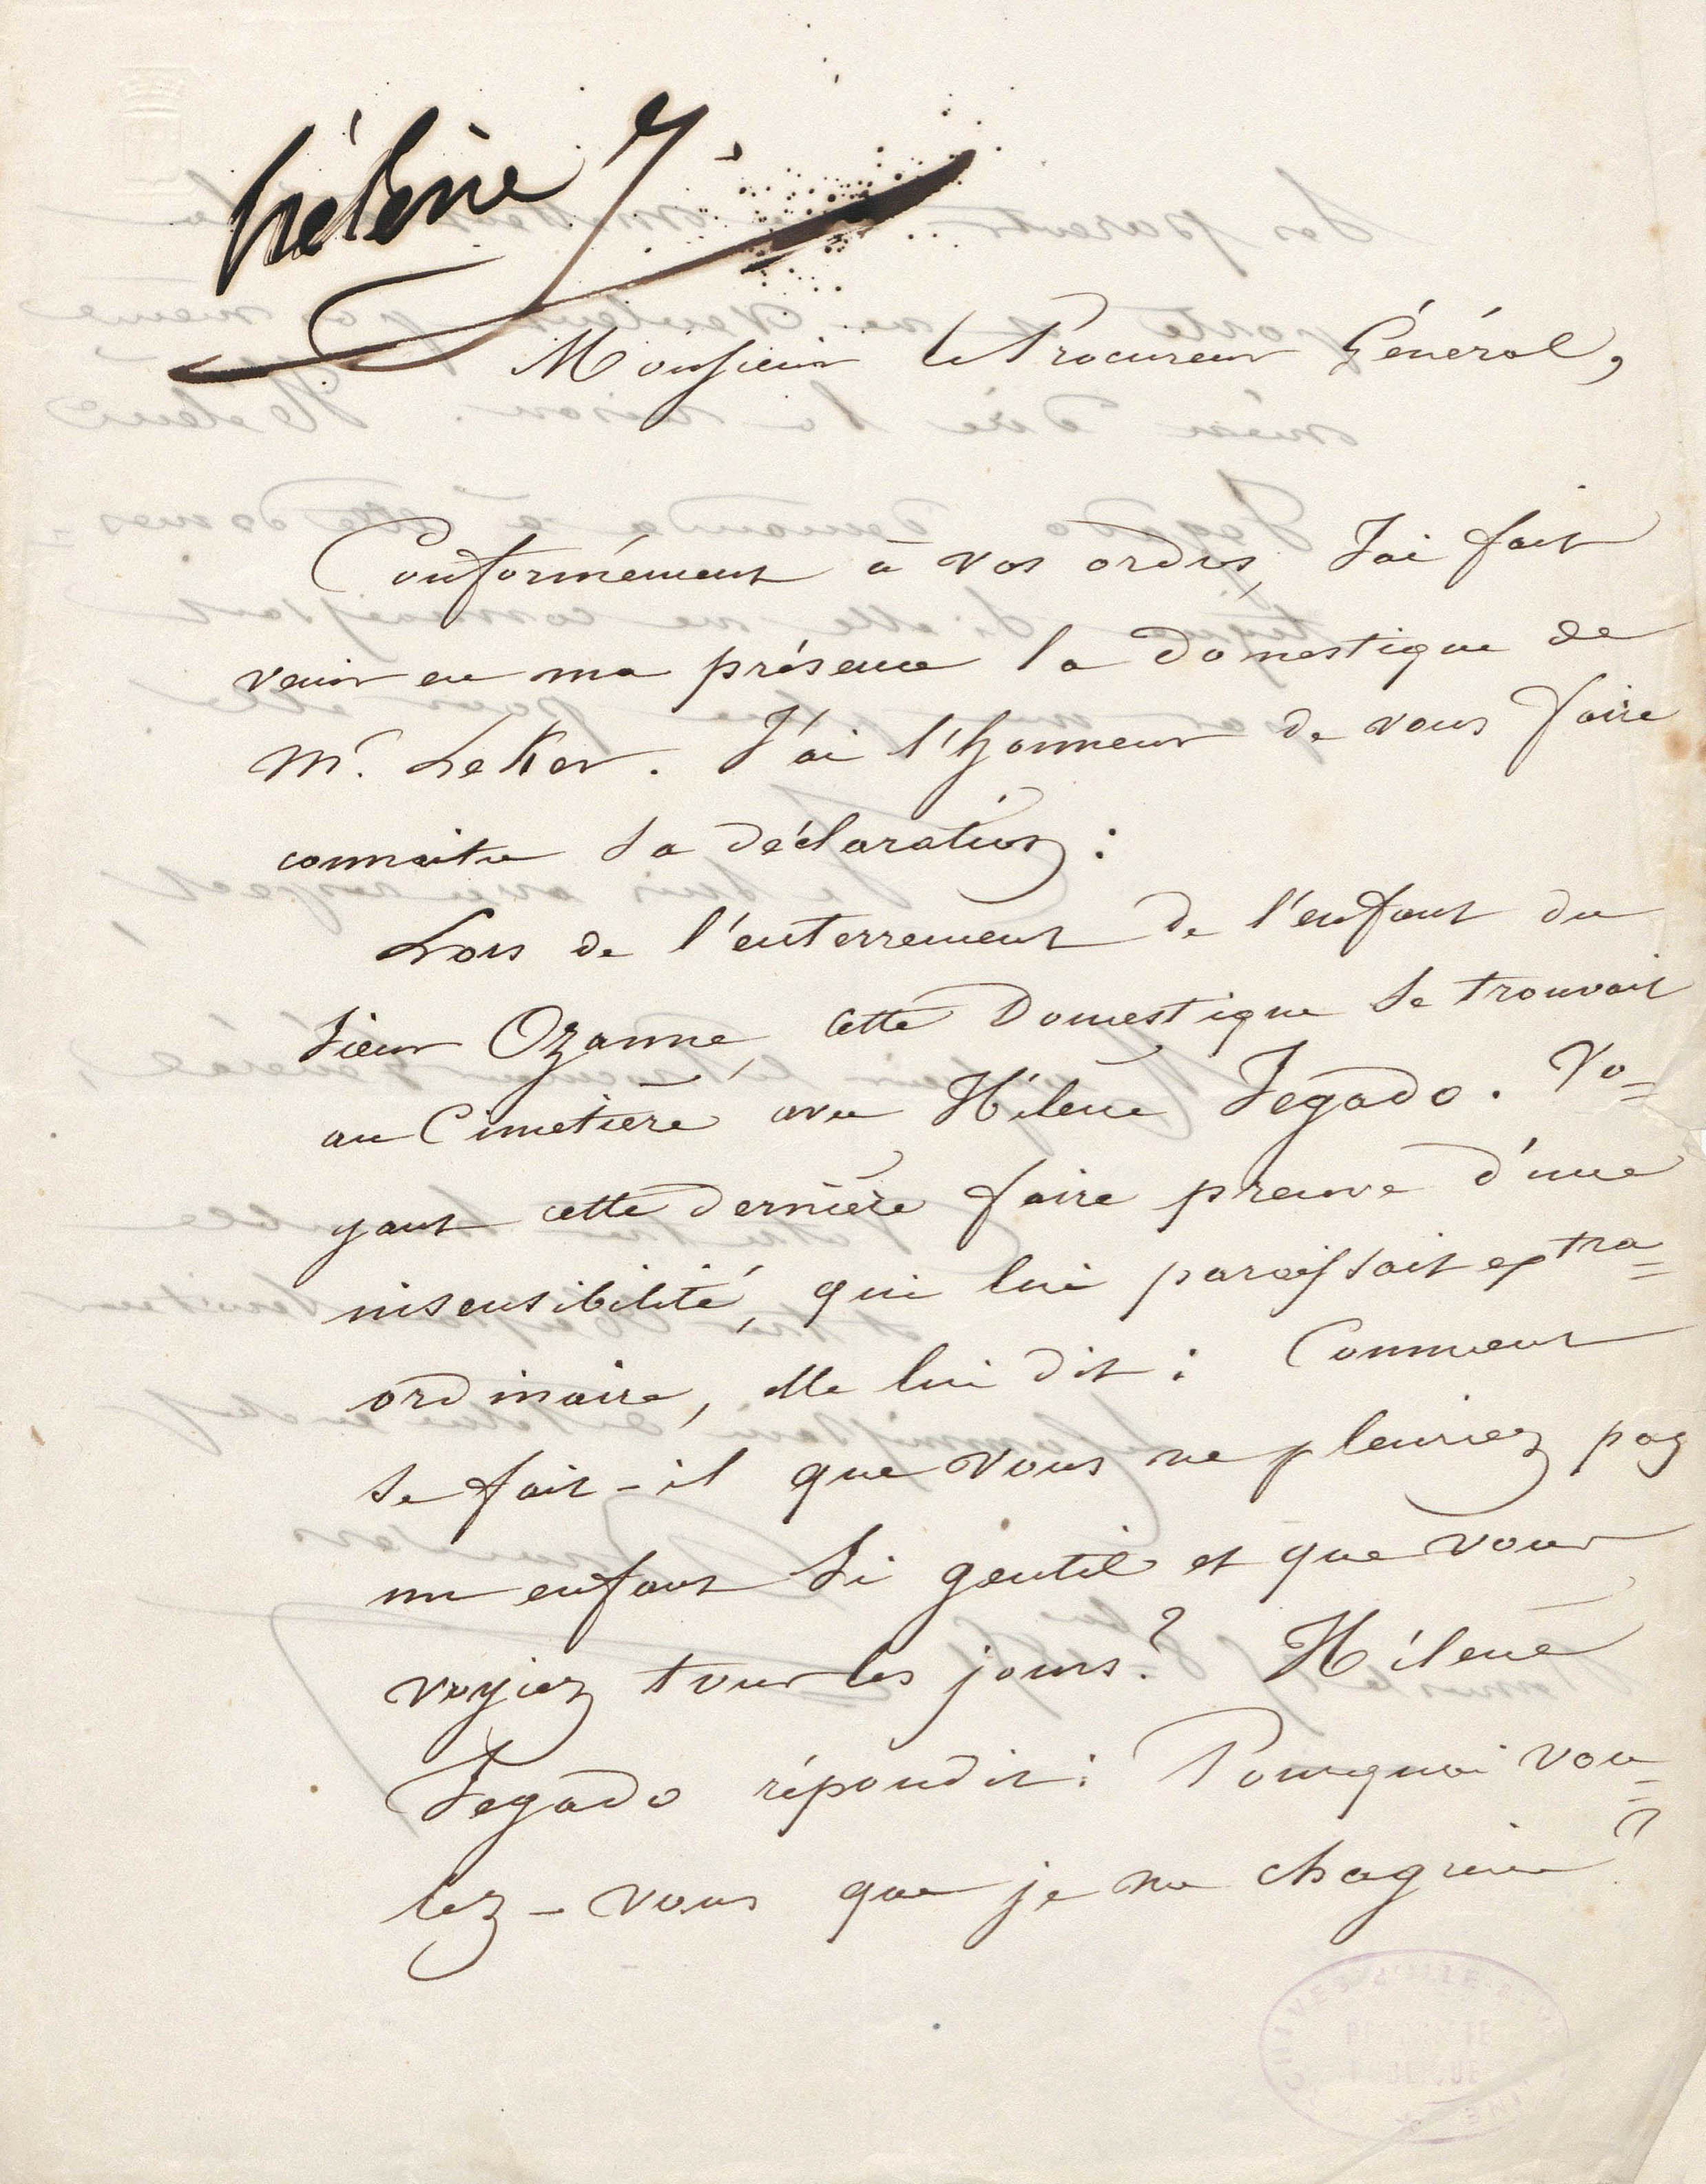 hélène J.
Monsieur le Procureur Général,
Conformément à vos ordres, J'ai fait
venir en ma présence la domestique de
Mr. Le Ker. J'ai l'honneur de vous faire
connaitre sa déclaration :
Lors de l'enterrement de l'enfant du
sieur Ozanne, cette Domestique se trouvait
au Cimetière avec Hélène Jegado. Vo=
yant cette dernière faire preuve d'une
insensibilité, qui lui paraissait extra=
ordinaire, elle lui dit : Comment
se fait-il que vous ne pleuriez pas
un enfant si gentil et que vous
voyiez tous les jours? Hélène
Jegado répondit : Pourquoi vou=
lez-vous que je me chagrine?